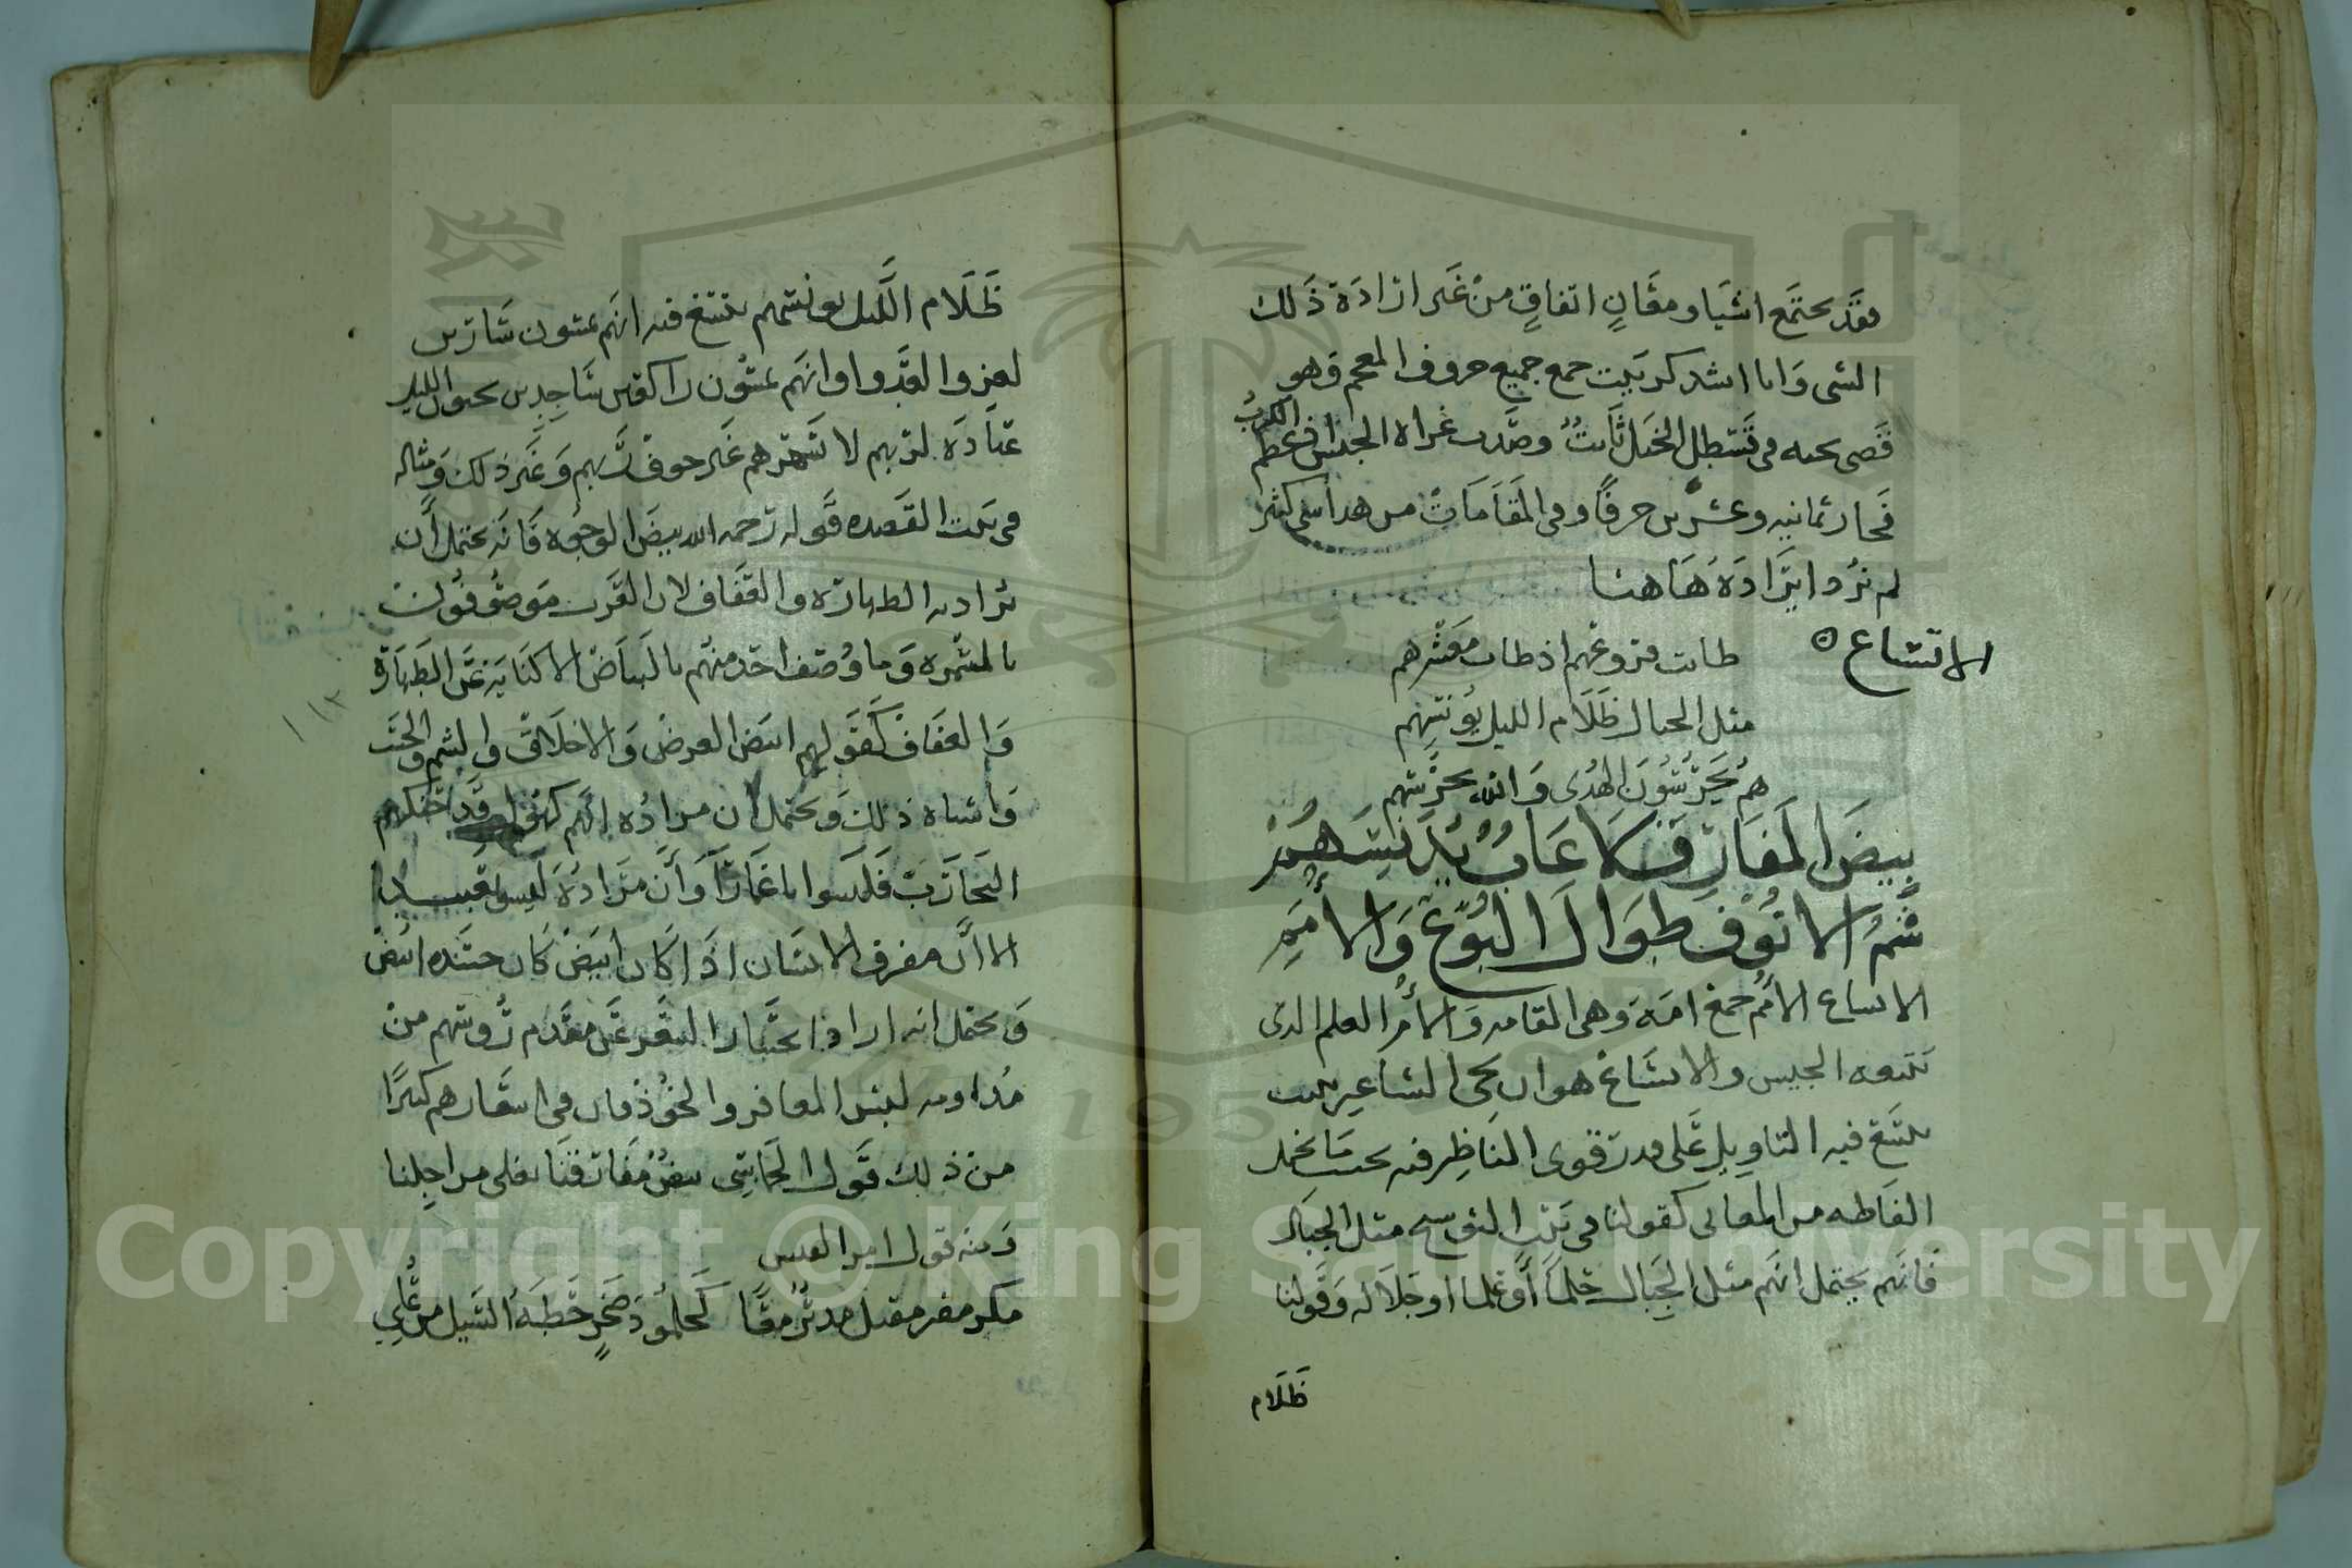 فقد يجتمع اشيا ومعان اتفاق من غير ارادة ذلك
الشى وانا انشدكم بيت جمع جميع حروف المعجم وهو
قضى نحبه فى قسطل الخيل ثابت وصدت غراه الجيش فى عظم الكرب
فحاز ثمانيه وعشرين حرفا وفى المقامات من هذا شى كثير
لم نرد ايراده هاهنا
الاتساع
طابت فروعهم اذ طاب مغرسهم
مثل الجبال ظلام الليل يونسهم
هم يحرسون الهدى والله يحرسهم
بيض المفارق لا عاب يدنسهم
شم الانوف طوال البوع والامم
الاتساع الامم جمع امة وهى القامه والامر العلم الذى
تتبعه الجيس والاتساع هو ان يجى الشاعر ببيت
يتسع فيه التاويل على قدر قوى الناظر فيه بحسب ما تحمل
الفاظه من المعانى كقولنا فى بيت التوسيع مثل الجبال
فانهم يحتمل انهم مثل الجبال حلما او علما او جلاله وقولنا
ظلام
ظلام الليل يونسهم يتسع فيه انهم يمشون سارين
لغزو العدو او انهم يمشون راكعين ساجدين يحيون الليل
عبادة لربهم لا تسهرهم غير خوف ربهم وغير ذلك ومثاله
فى بيت القصيده قوله رحمه الله بيض الوجوه فانه يحتمل ان
يراد به الطهارة والعفاف لان العرب موصوفون
بالسمره وما وصف احد منهم بالبياض الا كناية عن الطهارة
والعفاف كقولهم ابيض العرض والاخلاق والشيم والحسب
واشباه ذلك ويحتمل ان مراده انهم كهول قد احنكهم
التجارب فليسوا باغمار وان مراده ليسو بعبيد
الا ان مفرق الانسان اذا كان ابيض كان جسده ابيض
ويحتمل انه اراد انحسار الشعر عن مقدم روسهم من
مداومه لبس المغافر والخوذ وان فى اشعارهم كثيرا
من ذلك قول الحماسى بيض مفارقنا تغلى مراجلنا
ومنه قول امرا القيس
مكر مفر مقبل مدبر معا كجلمود صخر حطه السيل من علي
Copyright © King Saud University
1957